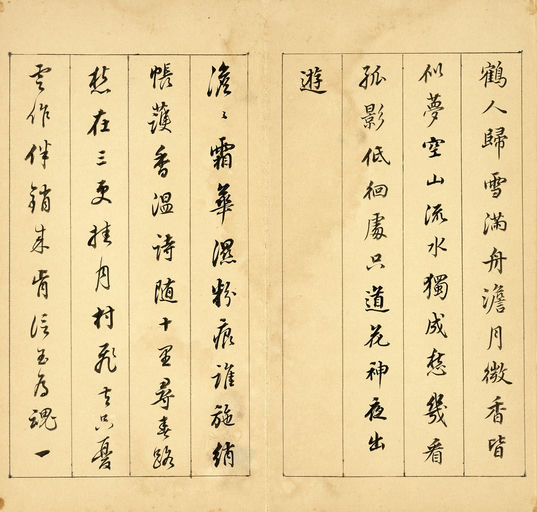 鶴人歸雪滿舟澹月微香皆
似夢空山流水獨成愁幾看
孤影低徊處只道花神夜出
遊
澹〻霜華濕粉痕誰施綃
帳護香溫詩隨十里尋春路
愁在三更挂月村飛去只憂
雲作伴銷来肯信玉為魂一